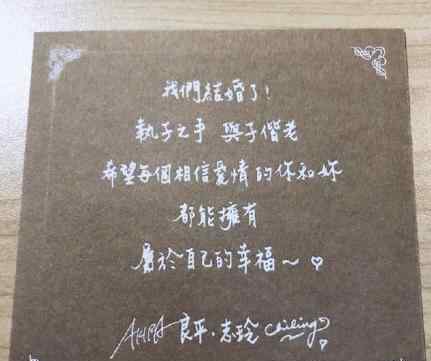 我們結婚了！
執子之手 與子偕老
希望每個相信愛情的你和妳
都能擁有
屬於自己的幸福～♡
AKIRA 良平·志玲 Chiling♡